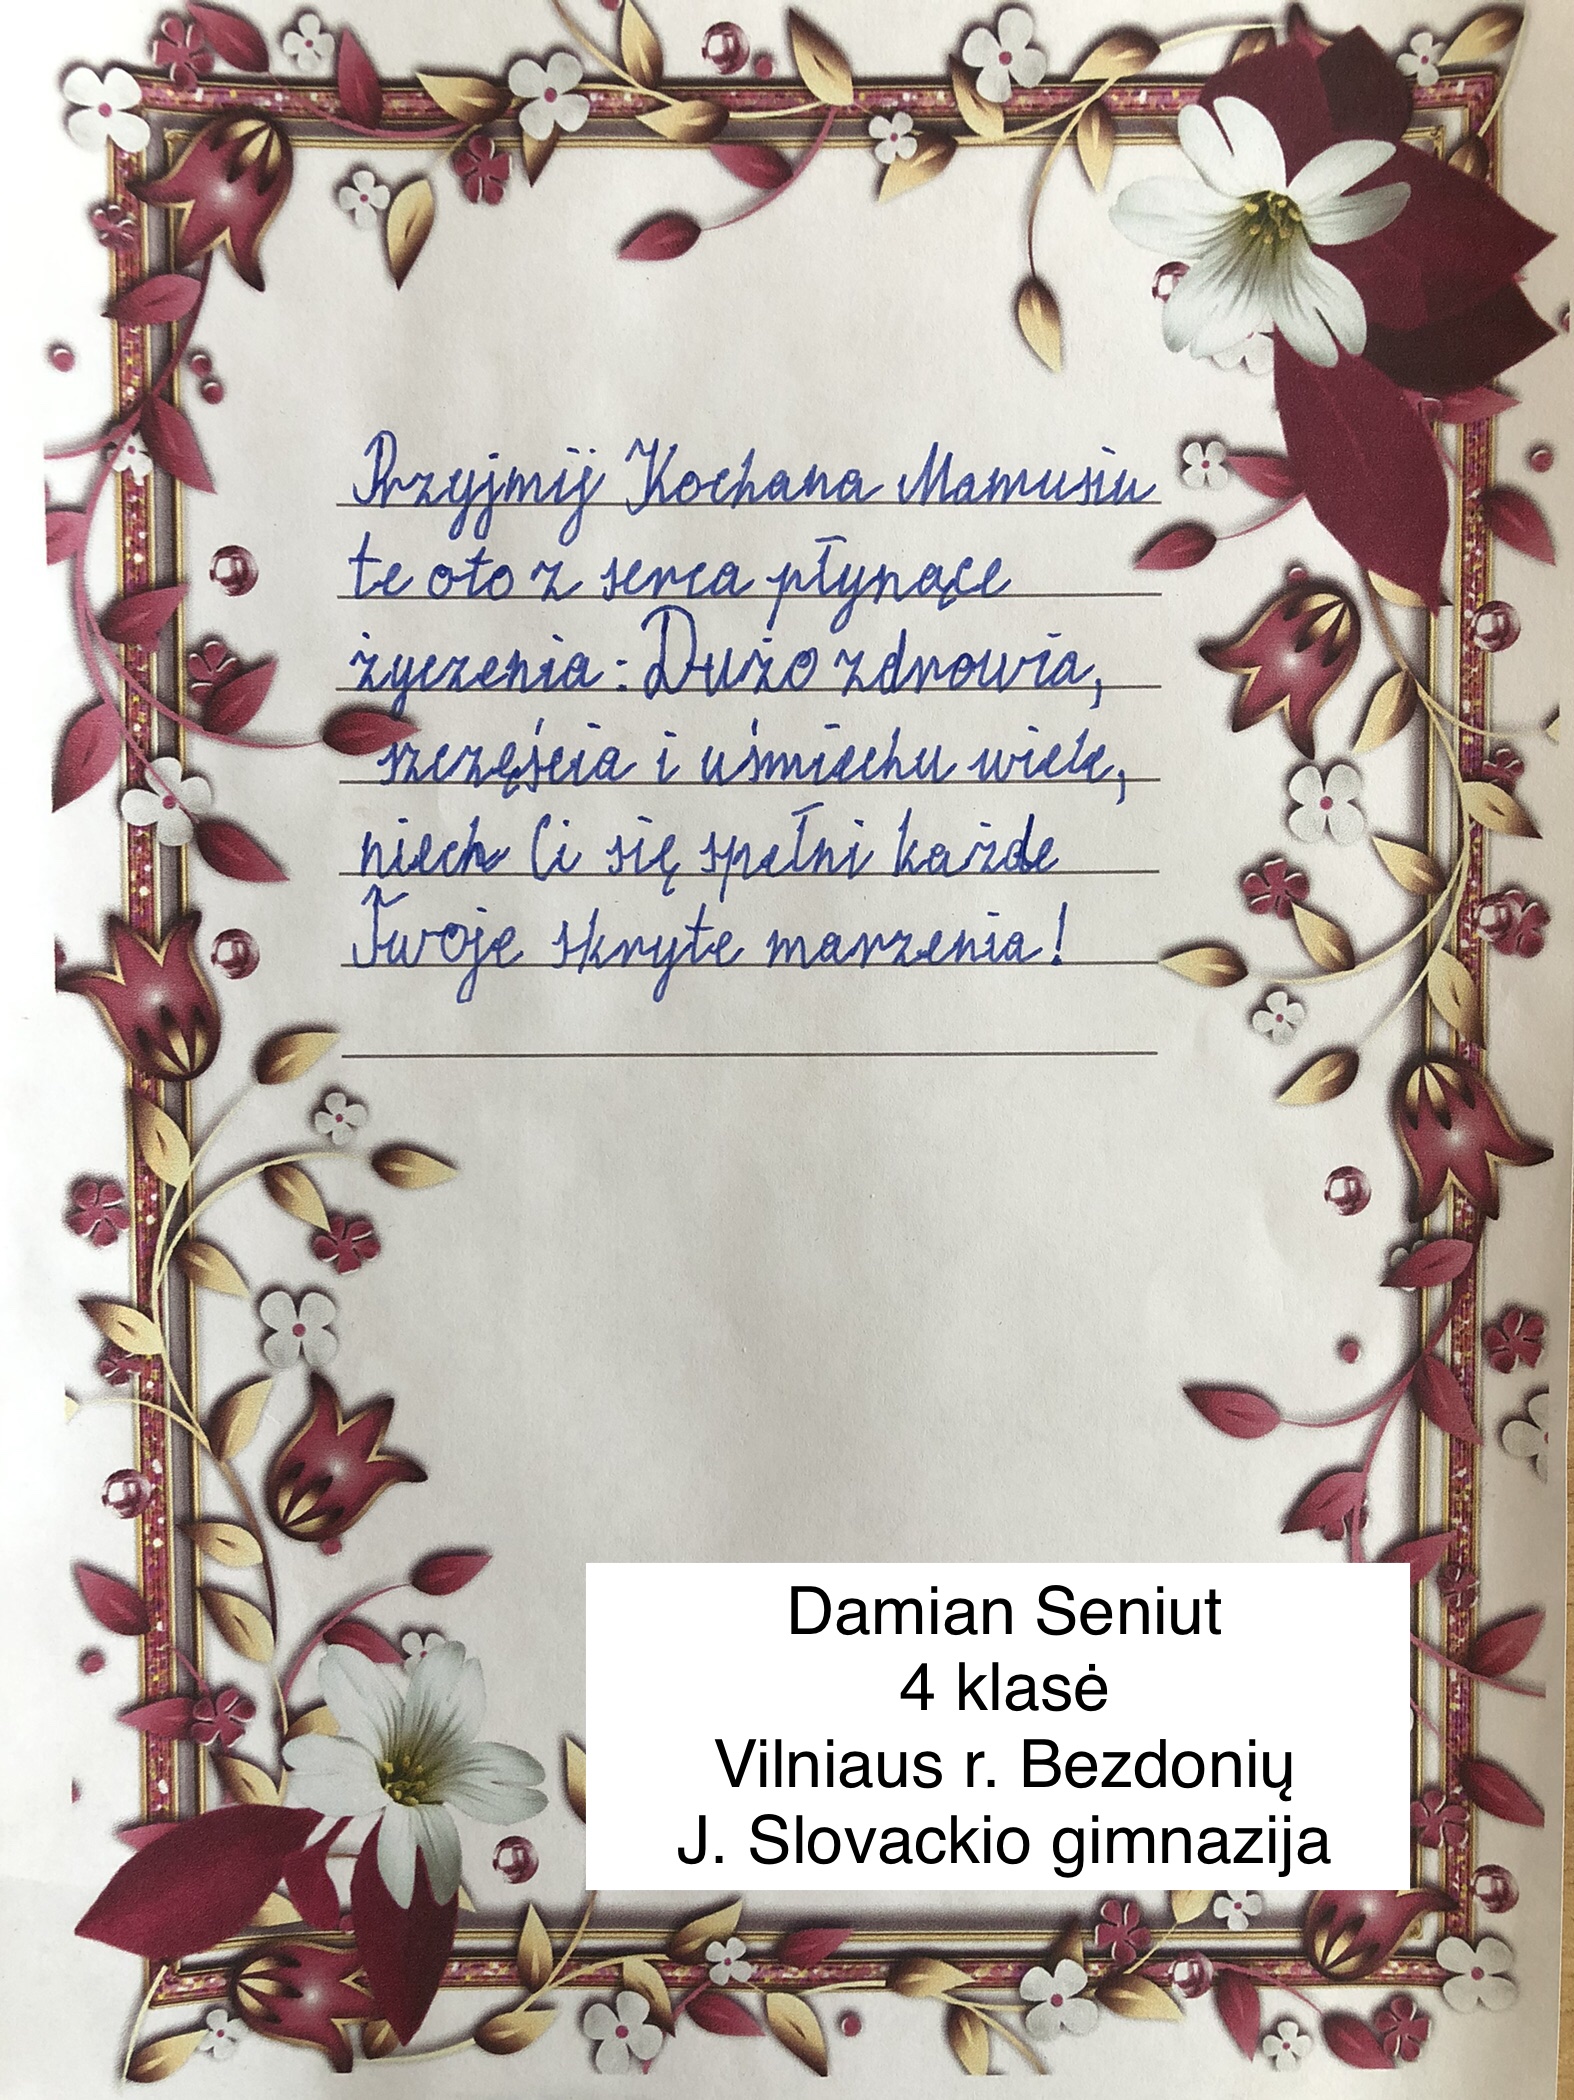 Przyjmij Kochana Mamusiu
te oto z serca płynące
życzenia: Dużo zdrowia,
szczęścia i uśmiechu wiele,
niech Ci się spełni każde
Twoje skryte marzenia!
Damian Seniut
4 klasė
Vilniaus r. Bezdonių
J. Slovackio gimnazija